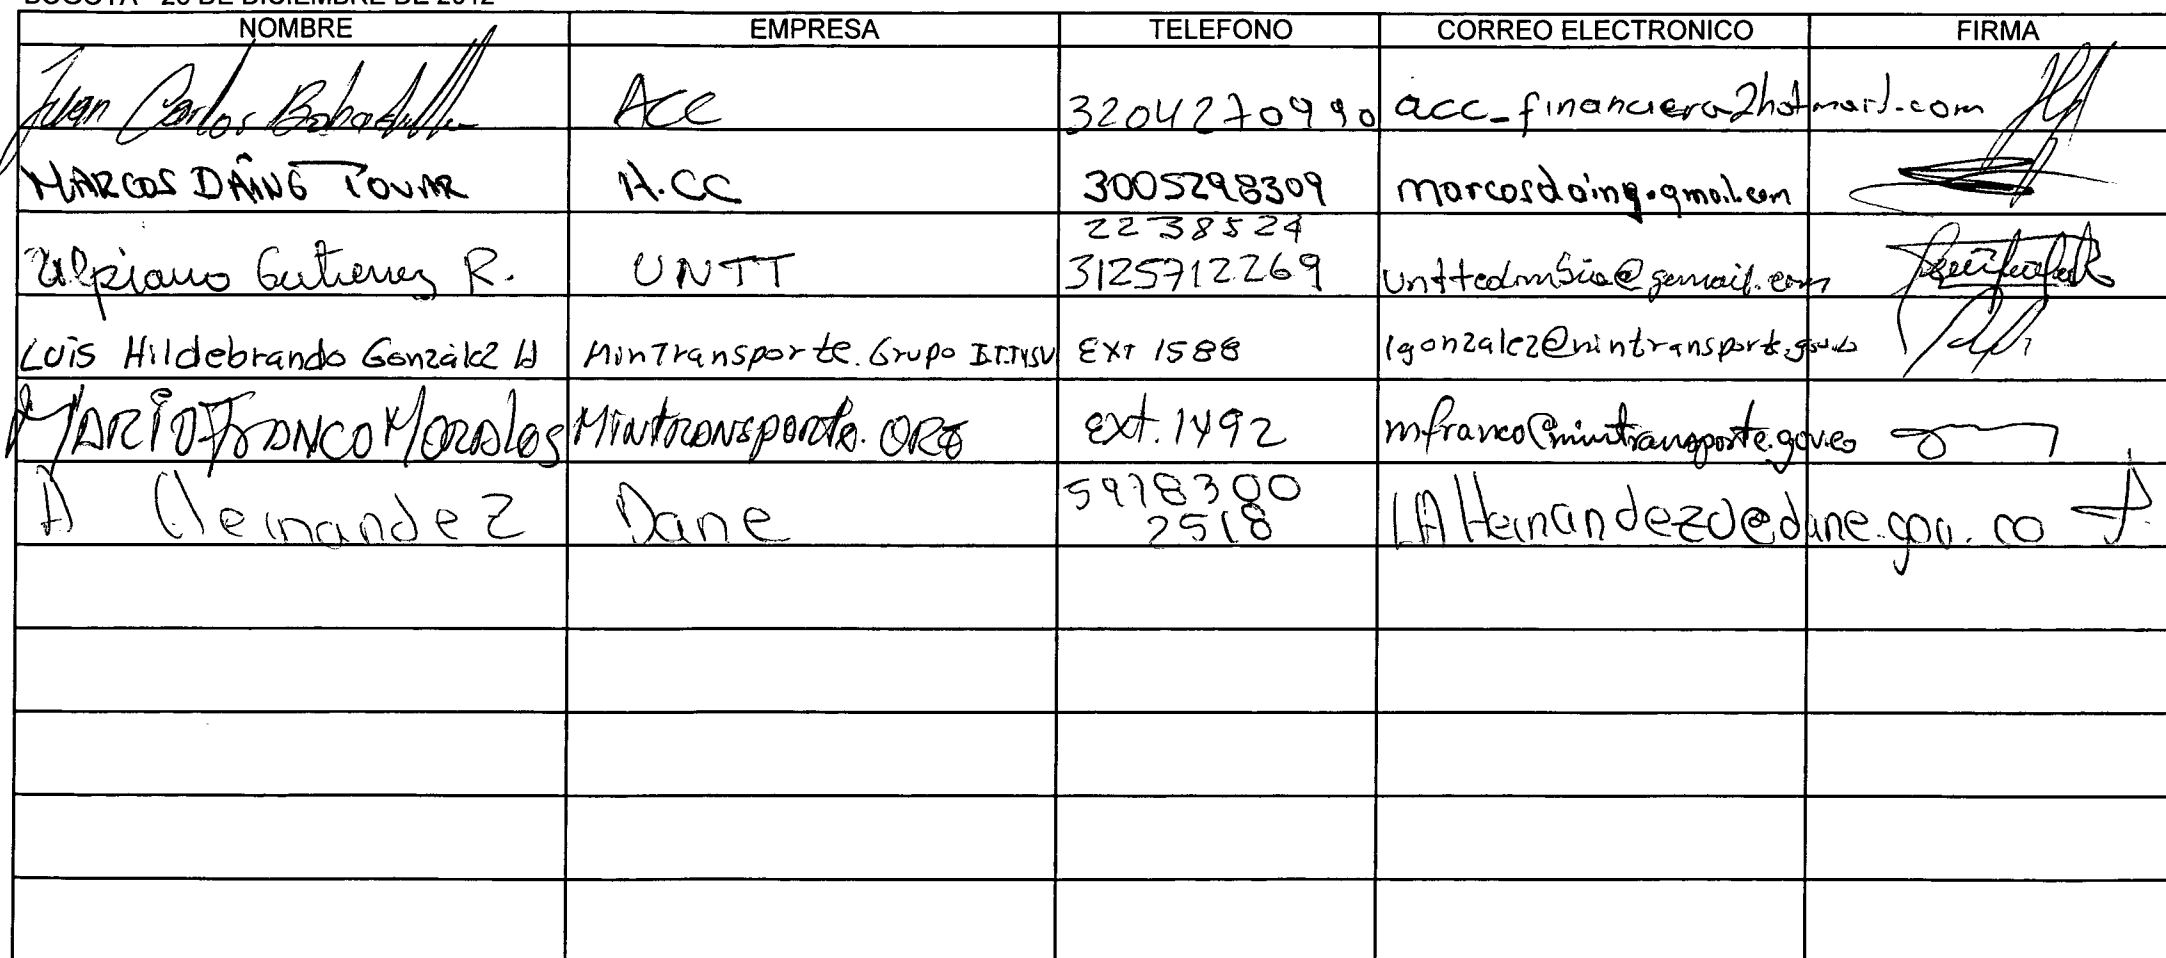 BOGOTA - 26 DE DICIEMBRE DE 2012
NOMBRE EMPRESA TELEFONO CORREO ELECTRONICO FIRMA
Juan Carlos Bobadilla ACC 3204270990 acc_financiera2hotmail.com
MARCOS DAING TOVAR A.CC 3005298309 marcosdaing.gmail.com
2238524
Ulpiano Gutierrez R. UNTT 3125712269 unttcolombia@gemail.com
Luis Hildebrando González Mintransporte. Grupo Ext 1588 lgonzalez@mintransporte.gov.co
MARIO FRANCO MORALES Mintransporte. ext. 1492 mfranco@mintransporte.gov.co
5978300
A Hernandez Dane 2518 LAHernandezO@dane.gov.co